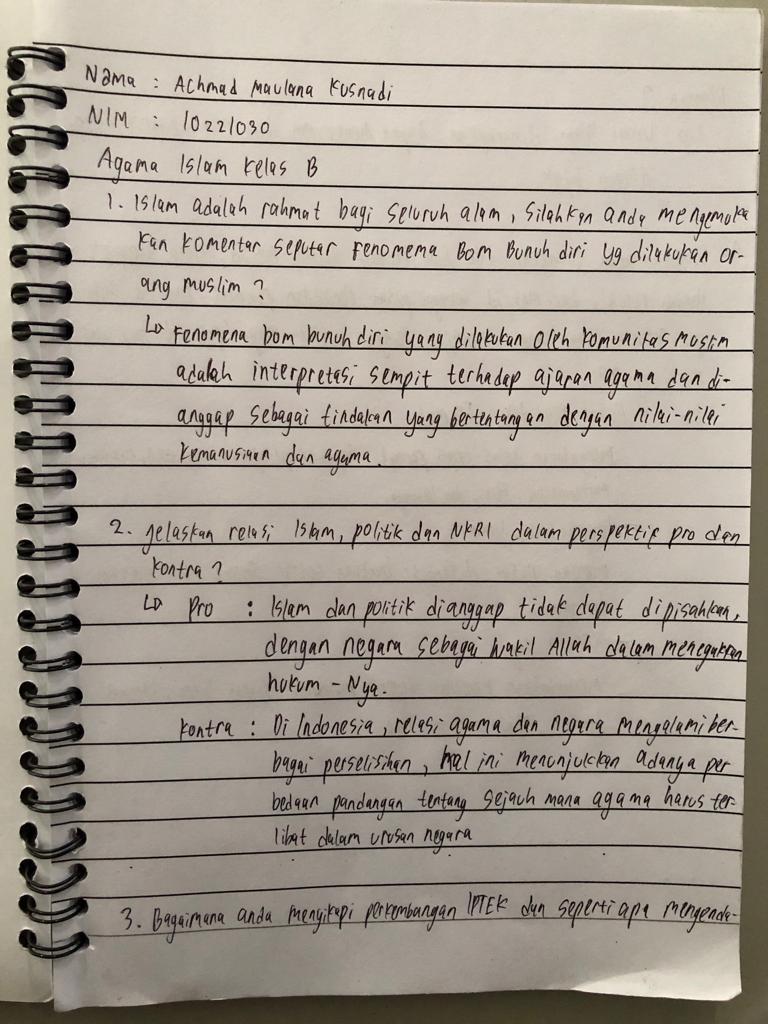 Nama : Achmad Maulana Kusnadi
NIM : 10221030
Agama Islam Kelas B
1. Islam adalah rahmat bagi seluruh alam, silahkan anda mengemuka
kan komentar seputar Fenomema Bom Bunuh diri yg dilakukan or-
ang muslim ?
↳ Fenomena bom bunuh diri yang dilakukan oleh komunitas muslim
adalah interpretasi sempit terhadap ajaran agama dan di-
anggap sebagai tindakan yang bertentangan dengan nilai-nilai
kemanusiaan dan agama.
2. Jelaskan relasi Islam, politik dan NKRI dalam perspektif pro dan
kontra ?
↳ Pro : Islam dan politik dianggap tidak dapat dipisahkan,
dengan negara sebagai wakil Allah dalam menegakkan
hukum - Nya.
Kontra : Di Indonesia, relasi agama dan negara mengalami ber-
bagai perselisihan, hal ini menunjukkan adanya per
bedaan pandangan tentang sejauh mana agama harus ter-
libat dalam urusan negara
3. Bagaimana anda menyikapi perkembangan IPTEK dan seperti apa mengenda-